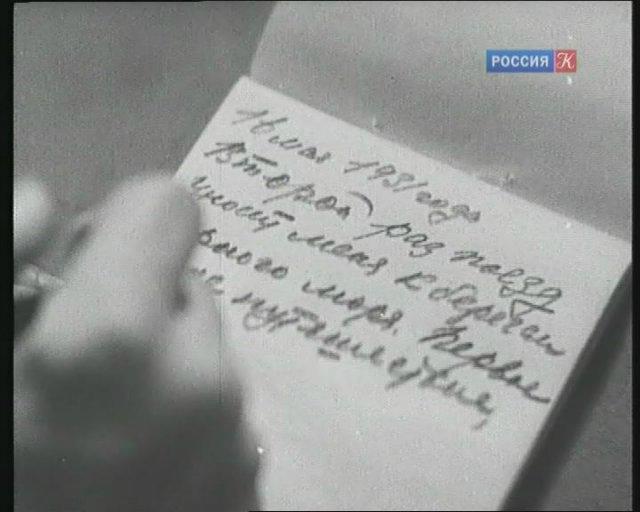 РОССИЯ К
16 мая 1931 года
Второй раз поезд
уносит меня к берегам
моря. Первое
путешествие,